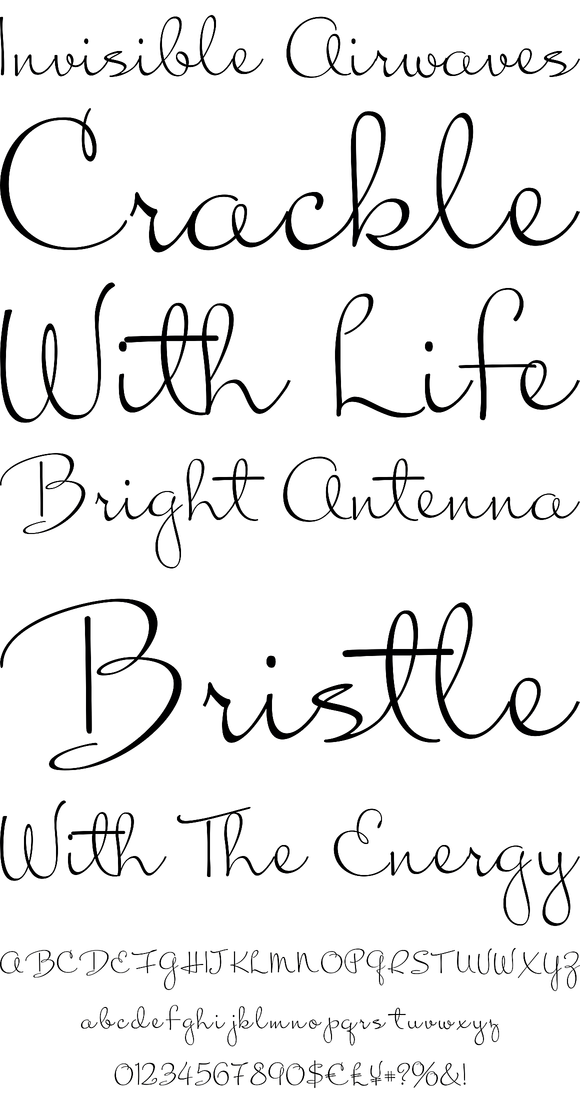 Invisible Airwaves
Crackle
With Life
Bright Antenna
Bristle
With The Energy
ABCDEFGHIJKLMNOPQRSTUVWXYZ
abcdefghijklmnopqrstuvwxyz
01234567890$€£¥#?%&!